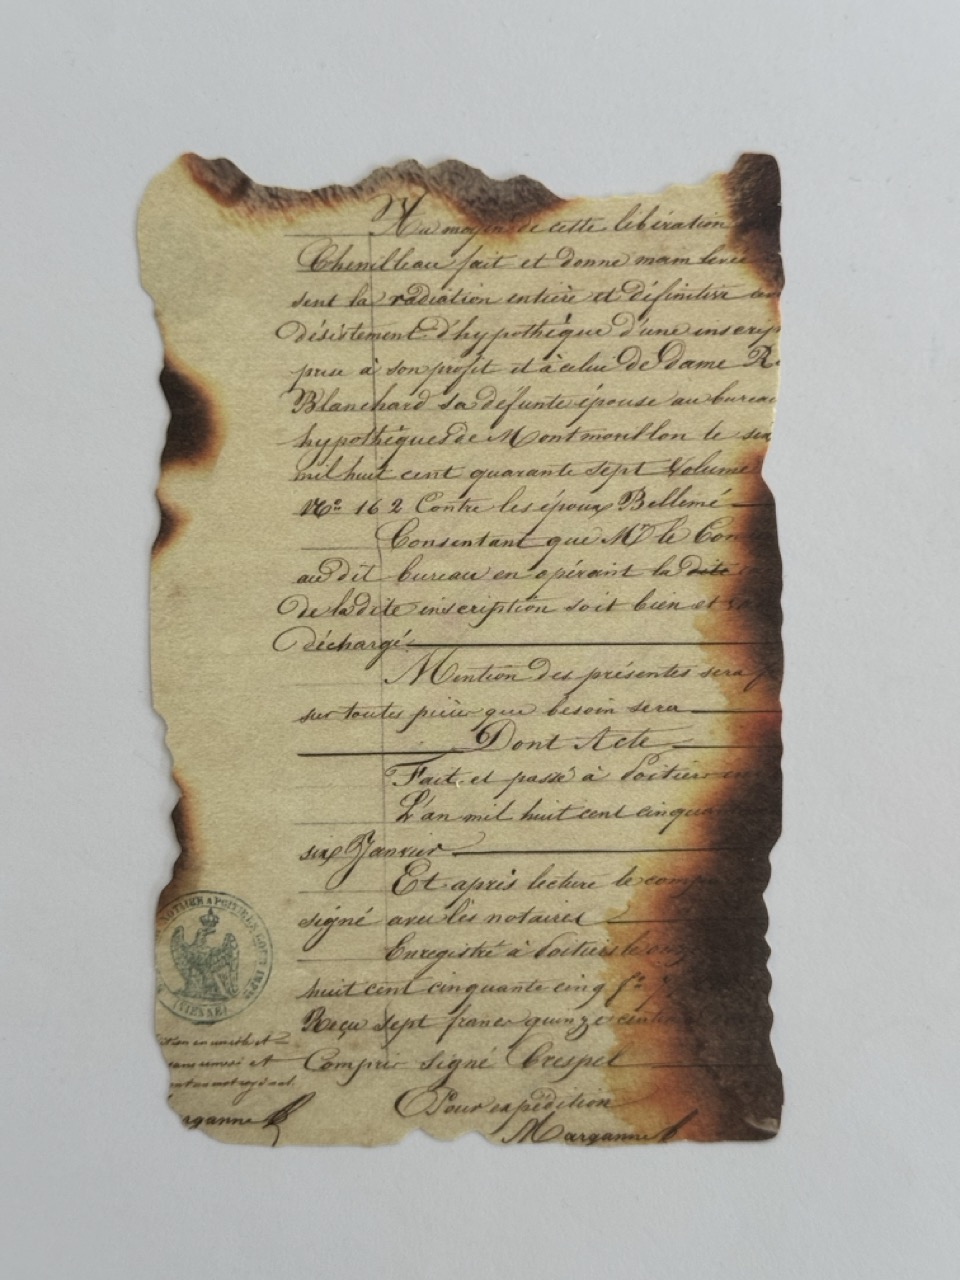 Au moyen de cette libération
Chenilleau fait et donne main levée
sent la radiation entière et définitive
désistement d'hypothèque d'une inscrip
prise à son profit et à celui de dame R
Blanchard sa défunte épouse au bureau
hypothèques de Montmorillon le six
mil huit cent quarante sept Volume
No. 162 Contre les époux Bellemé
Consentant que Mr le Con
au dit bureau en opérant la dite
de la dite inscription soit bien et
déchargé
Mention des présentes sera
sur toutes pièces que besoin sera
Dont Acte
Fait et passé à Poitiers
L'an mil huit cent cinquan
six Janvier
Et après lecture le comp
signé avec les notaires
Enregistré à Poitiers le onz
huit cent cinquante cinq f.o
Reçu sept francs quinze cent
Compris signé Crespel
Pour expédition
Marganne
NOTAIRE A POITIERS
(VIENNE)
et
arganne